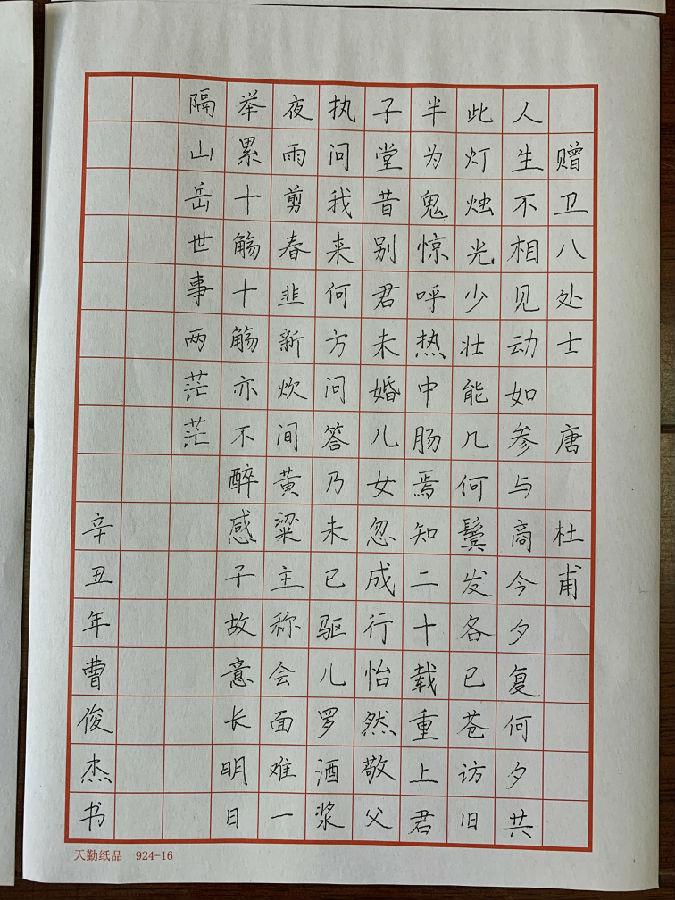 赠卫八处士 唐 杜甫
人生不相见动如参与商今夕复何夕共
此灯烛光少壮能几何鬓发各已苍访旧
半为鬼惊呼热中肠焉知二十载重上君
子堂昔别君未婚儿女忽成行怡然敬父
执问我来何方问答乃未已驱儿罗酒浆
夜雨剪春韭新炊间黄粱主称会面难一
举累十觞十觞亦不醉感子故意长明日
隔山岳世事两茫茫
辛丑年曹俊杰书
天勤纸品 924-16